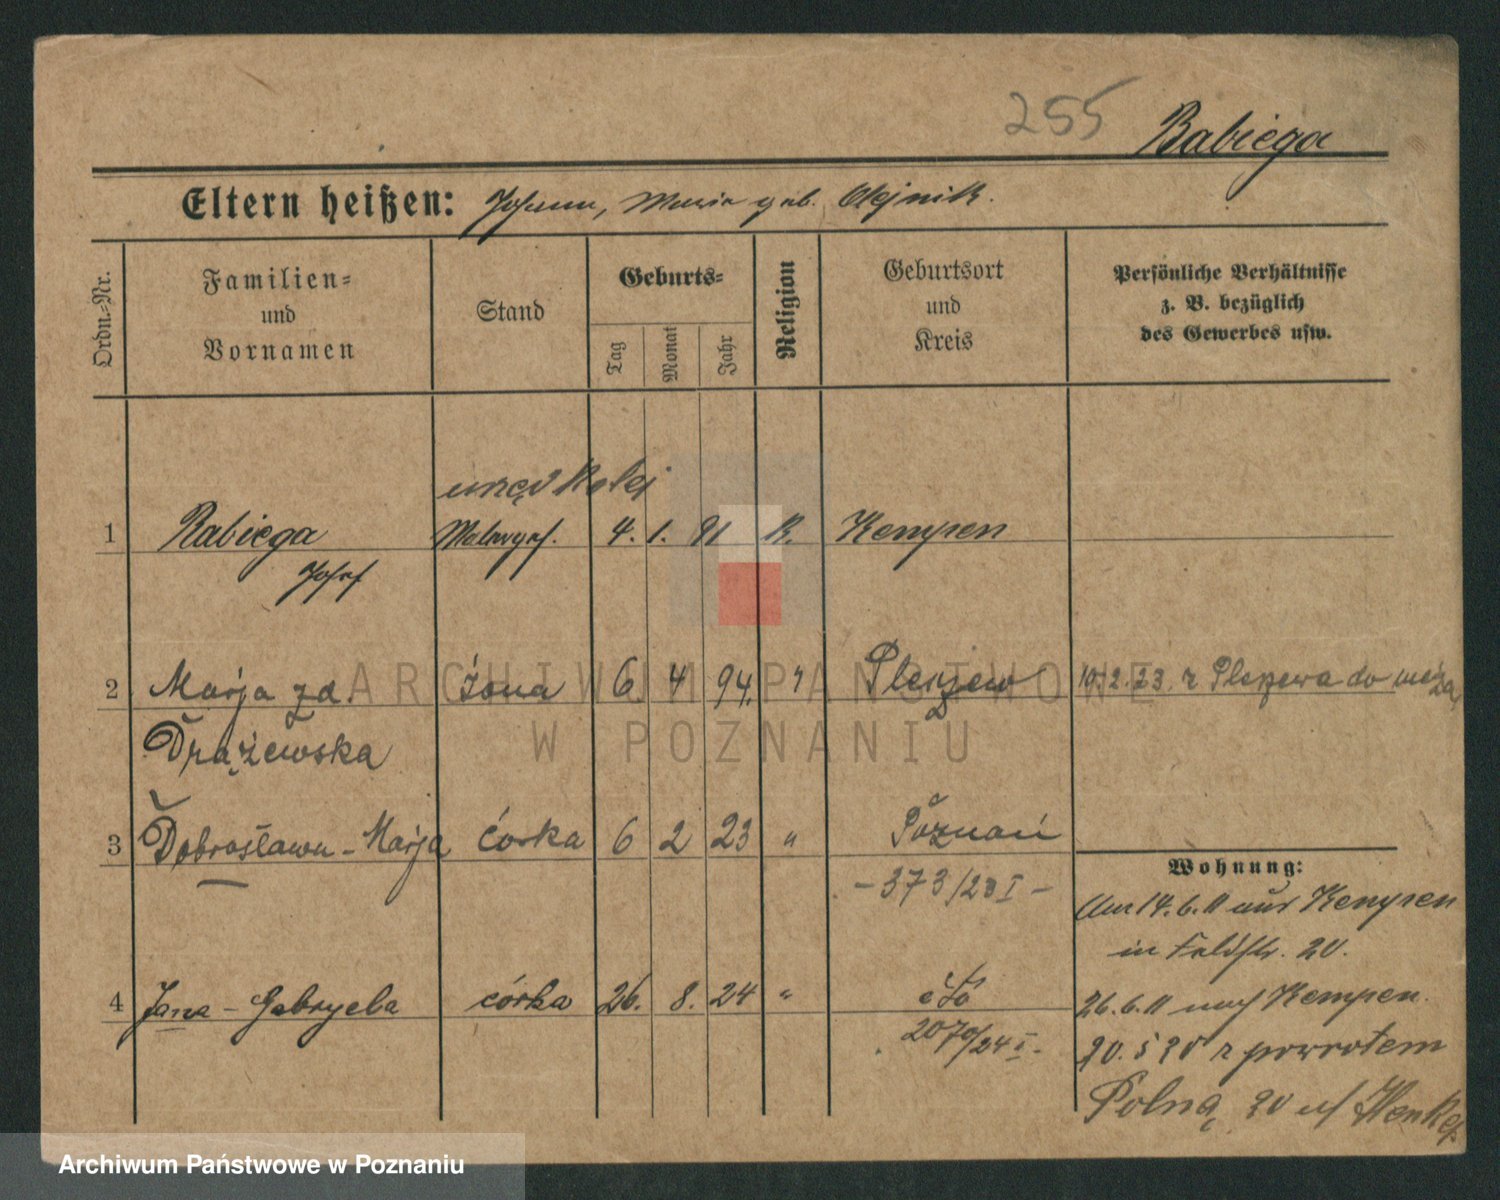 255 Rabiega
Eltern heißen: Johann, Maria geb. Olejnik.
Ordn.-Nr.
Familien-
und
Vornamen
Stand
Geburts-
Tag
Monat
Jahr
Religion
Geburtsort
und
Kreis
Persönliche Verhältnisse
z. B. bezüglich
des Gewerbes usw.
urzęd kolej
1 Rabiega 4. 1. 91 K. Kempen
Josef
2 Marja zd. żona 6 4 94. " Pleszew 10.12.23. z Pleszewa do męża
Drążewska
3 Dobrosława-Marja córka 6 2 23 " Poznań
-373/23 I-
Wohnung:
Am 14.6.11 aus Kempen
in Feldstr. 20.
4 Jana-Gabryela córka 26. 8. 24 "
2070/24 I.
26.6.11 nach Kempen.
20. 5 20 z powrotem
Polna, 20 u/
ARCHIWUM PAŃSTWOWE
W POZNANIU
Archiwum Państwowe w Poznaniu